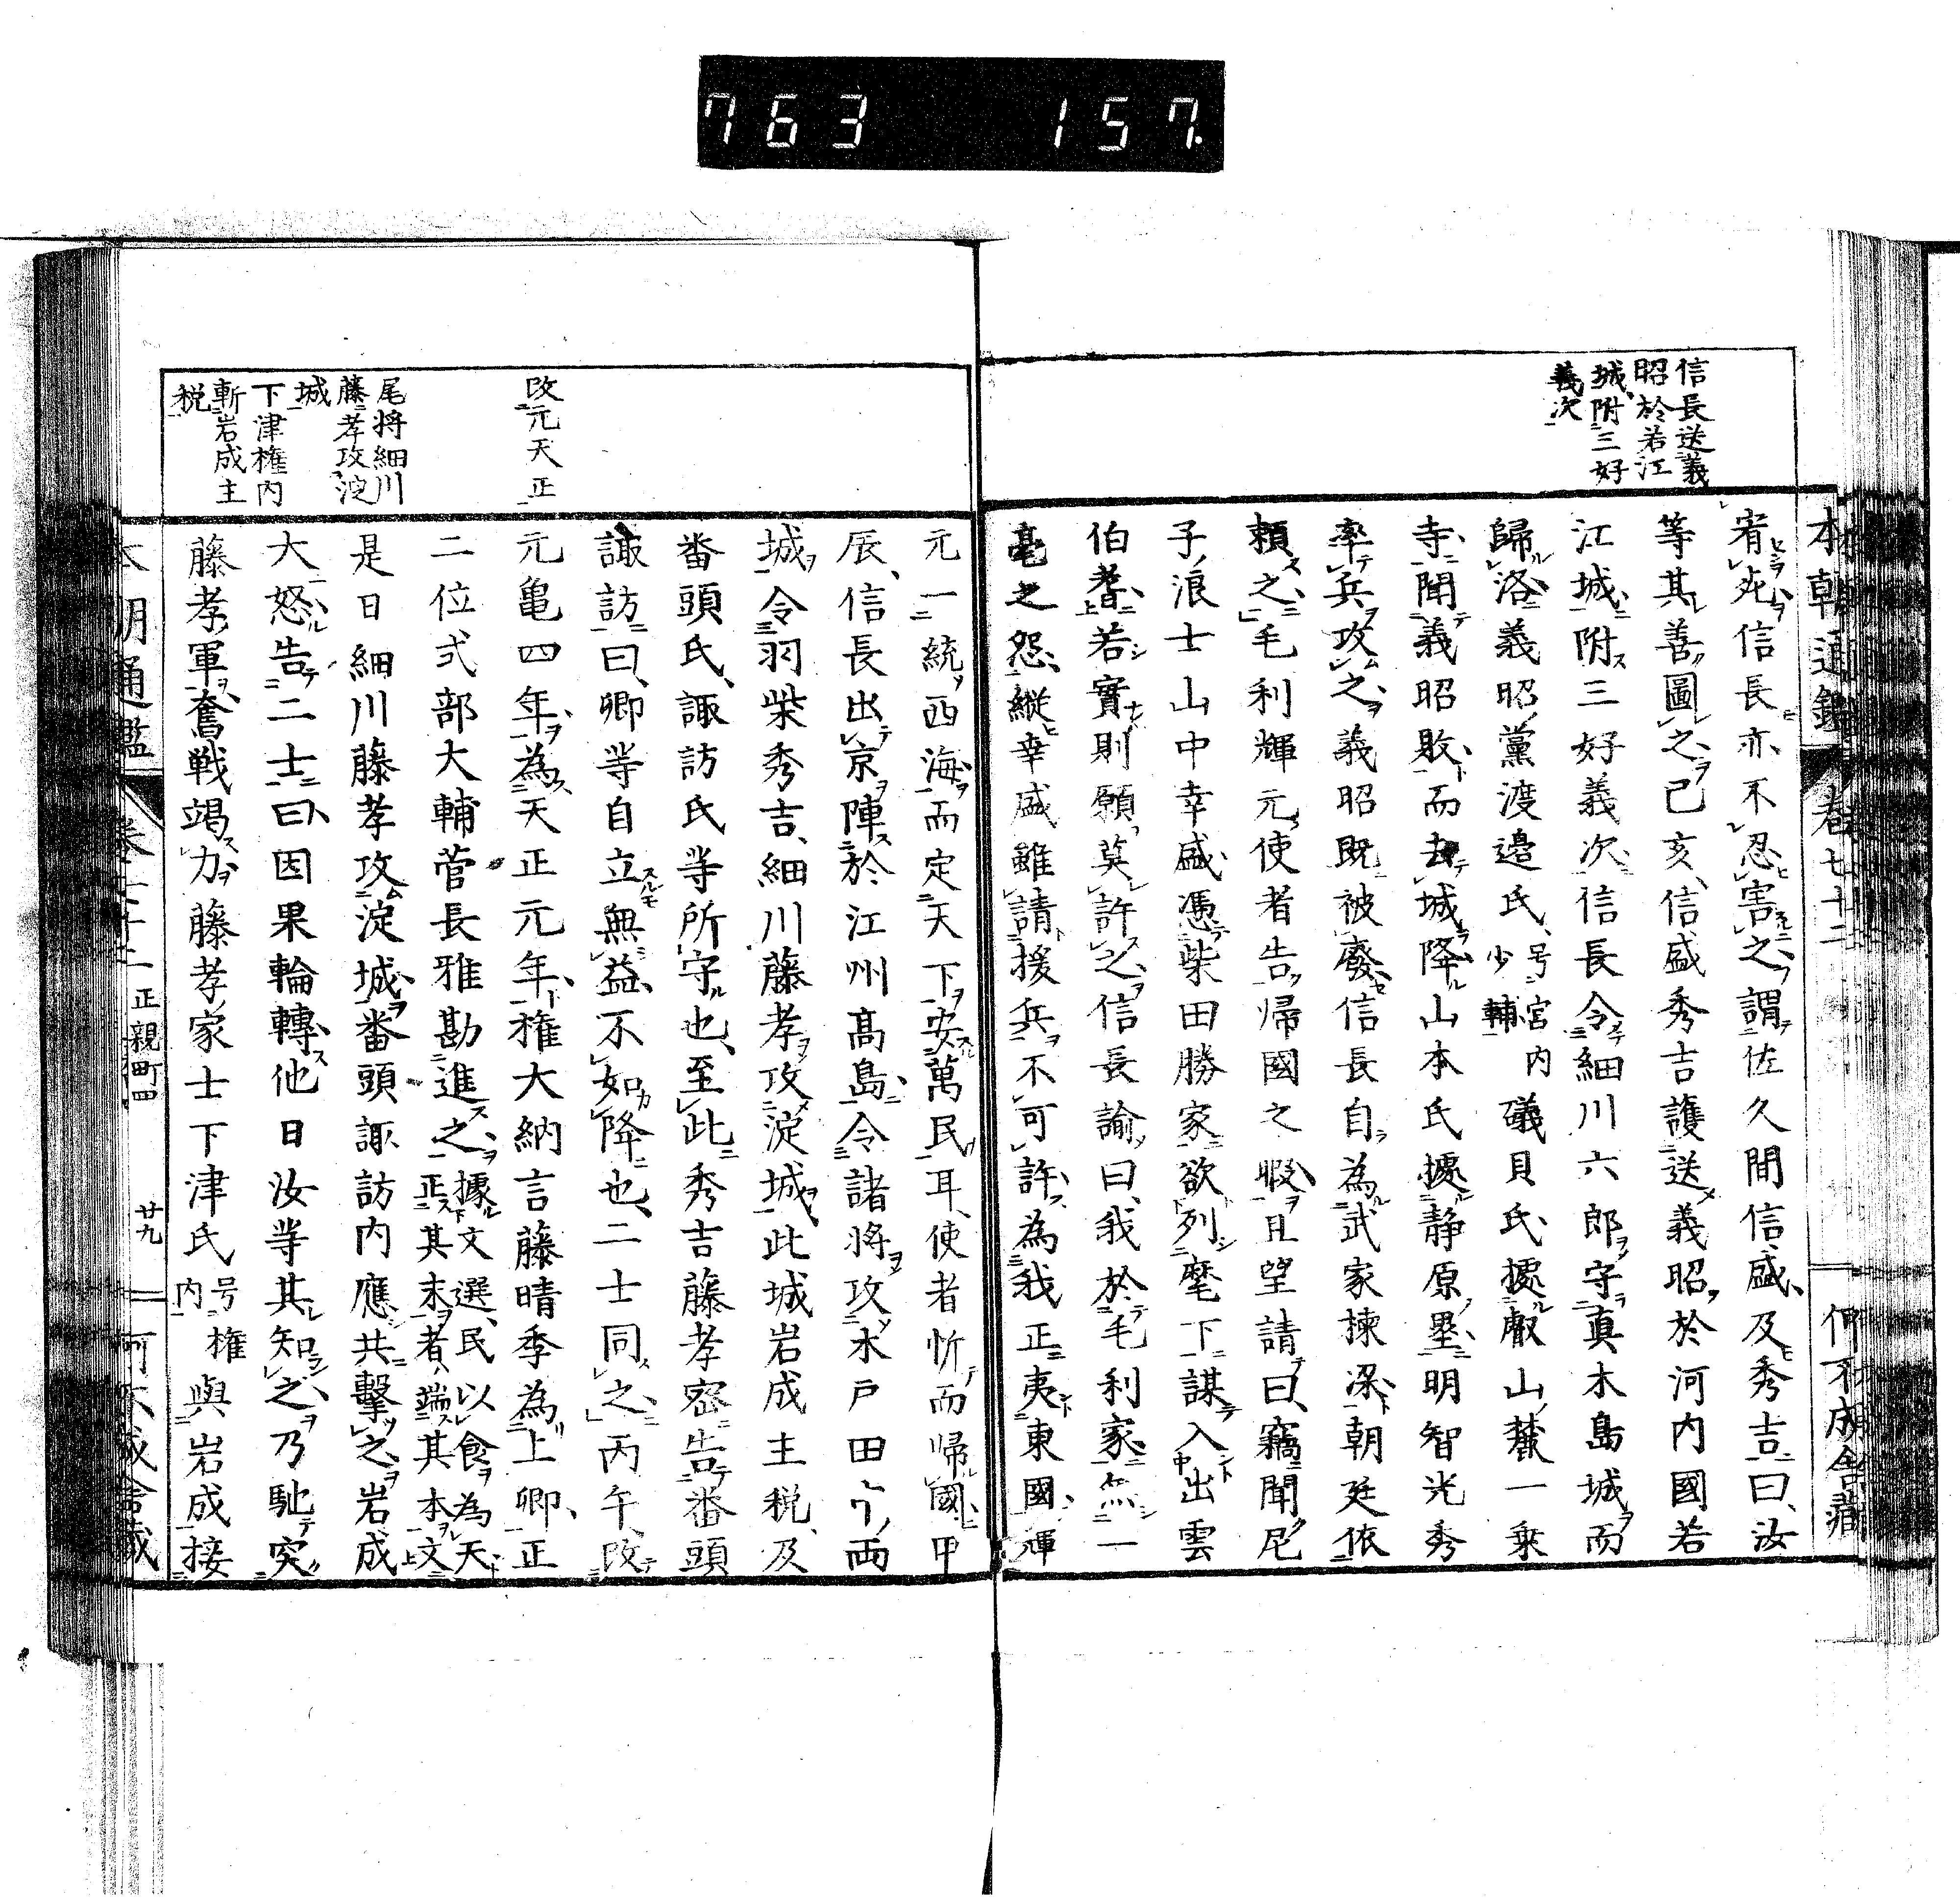 763 157
本朝通鑑 卷七十二 伊不成舎蔵
信長送義
昭於若江
城附三好
義次
宥死信長亦不忍害之謂佐久間信盛及秀吉曰汝
等其善圖之己亥信盛秀吉護送義昭於河内國若
江城附三好義次信長令細川六郎守真木島城而
歸洛義昭黨渡邉氏号宮内少輔礒貝氏據叡山麓一乗
寺聞義昭敗而去城降山本氏據静原塁明智光秀
率兵攻之義昭既被廢信長自為武家棟梁朝廷依
頼之毛利輝元使者告帰國之暇且望請曰竊聞尼
子浪士山中幸盛憑柴田勝家欲列麾下謀入出雲
伯耆若實則願莫許之信長諭曰我於毛利家無一
毫之怨縦幸盛雖請援兵不可許為我正夷東國輝
元一統西海而定天下安萬民耳使者忻而帰國甲
辰信長出京陣於江州髙島令諸将攻木戸田中両
城令羽柴秀吉細川藤孝攻淀城此城岩成主税及
番頭氏諏訪氏等所守也至此秀吉藤孝密告番頭
諏訪曰卿等自立無益不如降也二士同之丙午改
元亀四年為天正元年権大納言藤晴季為上卿正
二位式部大輔菅長雅勘進之據文選民以食為天正其末者端其本文
是日細川藤孝攻淀城番頭諏訪内應共擊之岩成
大怒告二士曰因果輪轉他日汝等其知之乃馳突
藤孝軍奮戦竭力藤孝家士下津氏号権内與岩成接
改元天正
尾将細川
藤孝攻淀
城
下津権内
斬岩成主
税
本朝通鑑 卷七十二 正親町四 廿九